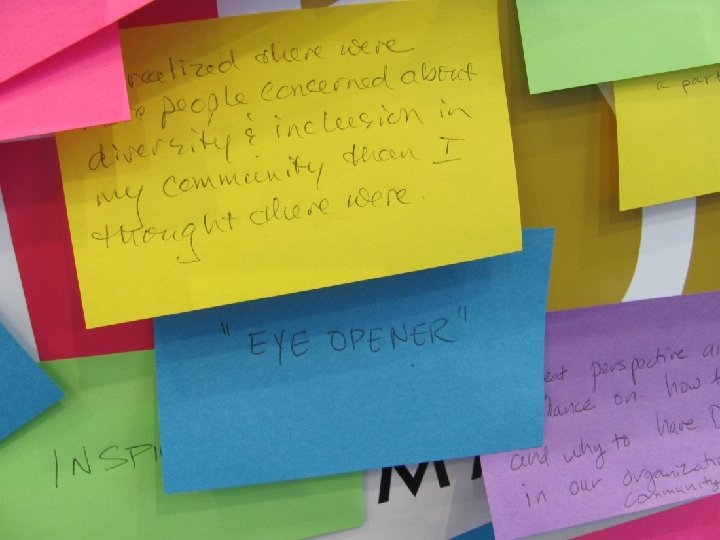 realized there were
people concerned about
diversity & inclusion in
my community than I
thought there were.
a part
"EYE OPENER"
INSPI
perspective
on how
and why to have
in our organizati
community
M